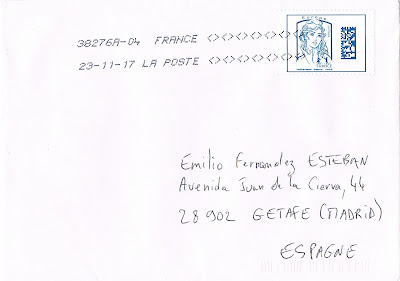 38276A-04 FRANCE
23-11-17 LA POSTE
EUROPE
FRANCE
Emilio Fernandez ESTEBAN
Avenida Juan de la Cierva, 44
28902 GETAFE (MADRID)
ESPAGNE